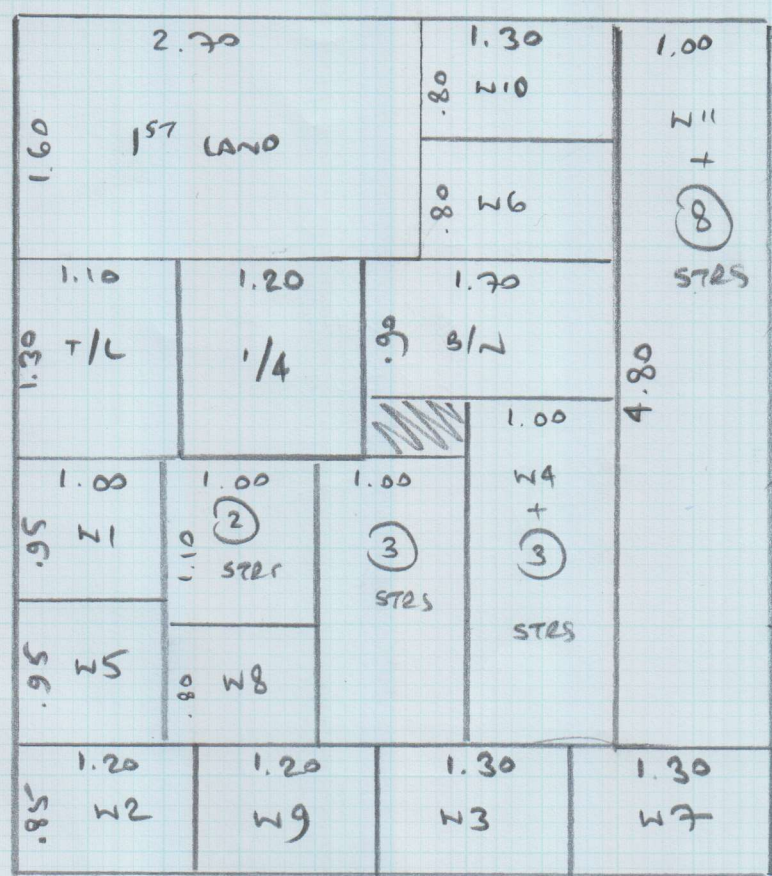 2.70
1.60
1ST LAND
1.30
.80 W10
.80 W6
1.00
W11
+
8
STRS
4.80
1.10
1.30 T/L
1.20
1/4
1.70
.90 B/L
1.00
W4
+
3
STRS
1.00
.95 W1
.95 W5
1.00
2
1.10
STRS
.80 W8
1.00
3
STRS
1.20
.85 W2
1.20
W9
1.30
W3
1.30
W7